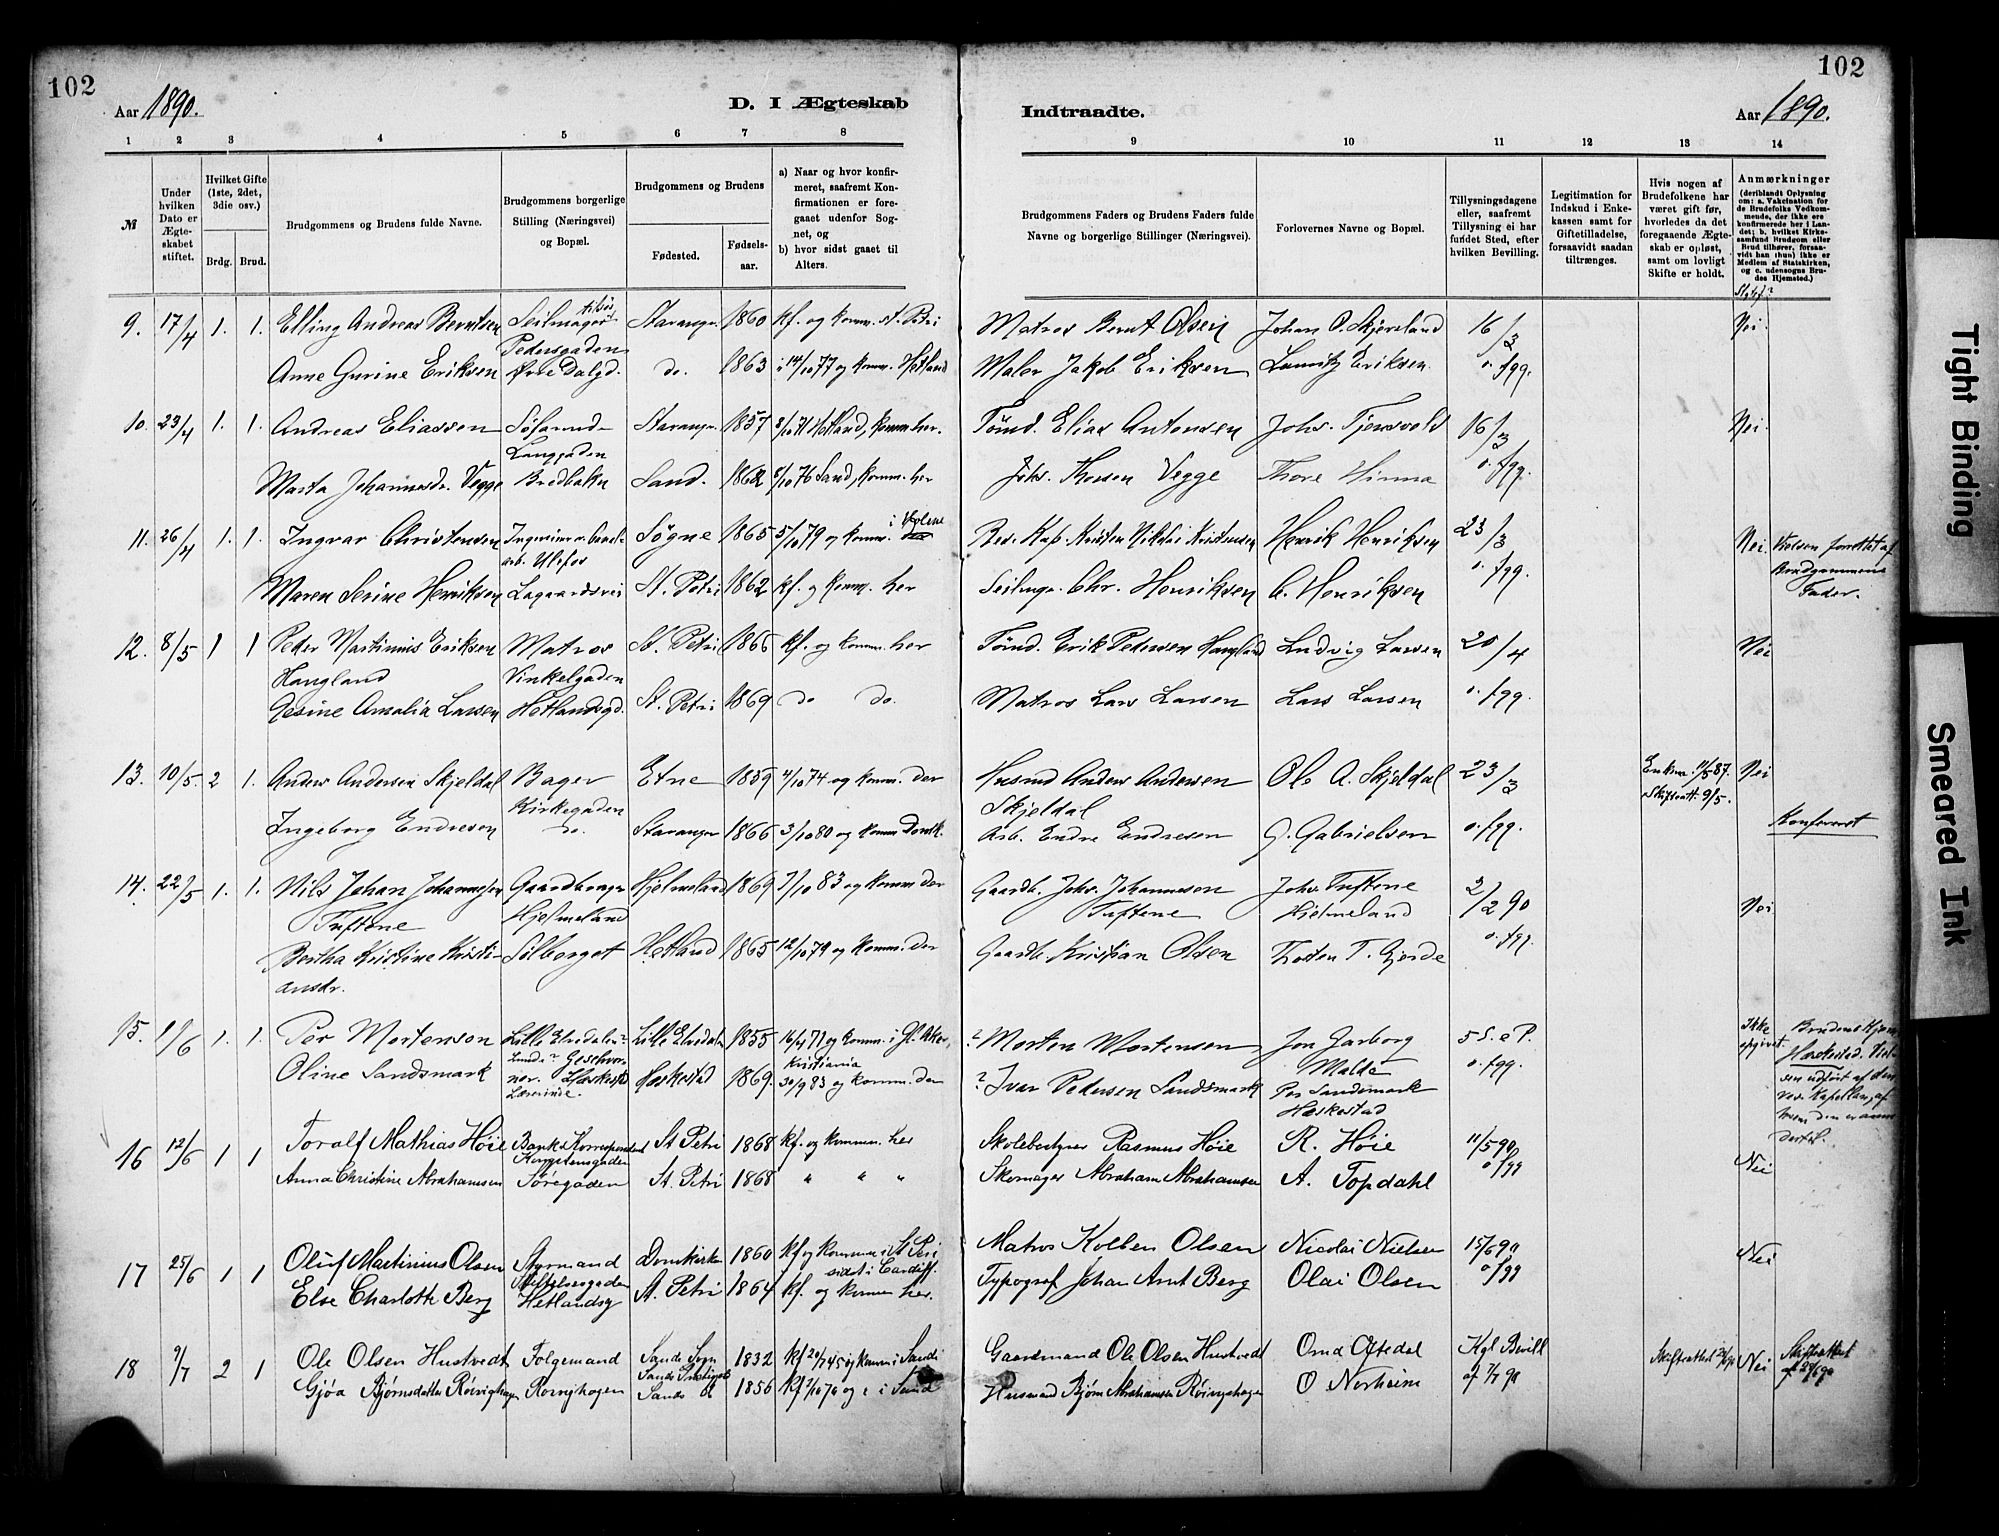 102
Aar 1890.
D. I Ægteskab
Indtraadte.
Aar 1890.
102
1 2 3 4 5 6 7 8 9 10 11 12 13 14
№
Under hvilken Dato er Ægteskabet stiftet.
Hvilket Gifte (1ste, 2det, 3die osv.)
Brdg. Brud.
Brudgommens og Brudens fulde Navne.
Brudgommens borgerlige Stilling (Næringsvei) og Bopæl.
Brudgommens og Brudens
Fødested. Fødselsaar.
a) Naar og hvor konfirmeret, saafremt Konfirmationen er foregaaet udenfor Sognet, og
b) hvor sidst gaaet til Alters.
Brudgommens Faders og Brudens Faders fulde Navne og borgerlige Stillinger (Næringsvei).
Forlovernes Navne og Bopæl.
Tillysningsdagene eller, saafremt Tillysning ei har fundet Sted, efter hvilken Bevilling.
Legitimation for Indskud i Enkekassen samt for Giftetilladelse, forsaavidt saadan tiltrænges.
Hvis nogen af Brudefolkene har været gift før, hvorledes da det foregaaende Ægteskab er opløst, samt om lovligt Skifte er holdt.
Anmærkninger (deriblandt Oplysning om: a. Vakcination for de Brudefolks Vedkommende, der ikke ere konfirmerede her i Landet; b. hvilket Kirkesamfund Brudgom eller Brud tilhører, forsaavidt han (hun) ikke er Medlem af Statskirken, og c. udensogns Brudes Hjemsted.)
9. 17/4 1. 1. Elling Andreas Berntsen Seilmager Stavanger 1860 kf. og komm. St. Petri Matros Bernt Olsen Johan O. Skjørsland 16/3 Nei.
Pedersgaden
Anne Gurine Eriksen Øvre Dalgd. do. 1863 14/10 77 og komm. Hetland Maler Jakob Eriksen Lauritz Eriksen o. fgg.
10. 23/4 1. 1. Andreas Eliassen Søfarende Stavanger 1857 8/10 71 Hetland, komm. her. Tømd. Elias Antonsen Johs. Tjensvold 16/3 Nei.
Langgaden
Marta Johannesdr. Vegge Bredbakn Sand. 1862 8/10 76 Sand, komm. her Johs. Thorsen Vegge Thore Hinna o. fgg.
11. 26/4 1. 1. Ingvar Christensen Søgne 1865 5/10 79 og komm. i Holme Bes. Kap. Kristen Nikolai Kristensen Henrik Henriksen 23/3 Nei Vielsen forrettet af
arb. Ulefos Brudgommens
Maren Serine Henriksen Lagaardsvei St. Petri 1862 kf. og komm. her Seilmgr. Chr. Henriksen C. Henriksen o. fgg. Fader.
12. 8/5 1 1 Peder Martinius Eriksen Matros St. Petri 1866 kf. og komm. her Tømd. Erik Pedersen Haugland Ludvig Larsen 20/4 Nei
Haugland Vinkelgaden
Gesine Amalia Larsen Hetlandsgd. St. Petri 1869 do do. Matros Lars Larsen Lars Larsen o. fgg.
13. 10/5. 2 1. Anders Andersen Skjeldal Bager Etne 1859 4/10 74 og komm. der Husmd Anders Andersen Ole A. Skjeldal 23/3 Enkem. 11/5 87. Nei
Kirkegaden Skjeldal Skifteatt. 9/5.
Ingeborg Endresen do. Stavanger 1866 3/10 80 og komm Domk. Arb. Endre Endresen G. Gabrielsen o. fgg. Konfereret
14. 22/5 1. 1. Nils Johan Johannesen Gaardbruger Hjelmeland 1869 7/10 83 og komm der Gaardb. Johs. Johannesen Johs. Tuftene 2/2 90 Nei
Tuftene Hjelmeland Tuftene Hjelmeland
Bertha Kristine Kristi- Sølberget Hetland 1865 12/10 79 og komm. der Gaardb. Kristian Olsen Torsten T. Gjerde o. fgg.
ansdr.
15. 1/6 1. 1. Per Mortenson Lille Elvedalen Lille Elvedalen 1855 16/4 71 og komm. i Gl. Aker, ? Morten Mortensen Jon Garborg 5 S. e P. Ikke opgivet Brudens Hjem
Kristiania Malde Heskestad. Viel-
Oline Sandsmark Heskestad 1869. 30/9 83 og komm. der ? Ivar Pedersen Sandsmark Per Sandsmark o. fgg. sen udført af den
Lærerinde. Heskestad res. Kapellan, af
16 12/6 1 1 Toralf Mathias Høie Bank-Korrespondent St Petri 1868 kf. og komm. her Skolebestyrer Rasmus Høie R. Høie 11/5 90 Nei
Kongstensgaden
Anna Christine Abrahamsen Søregaden St. Petri 1868 " " " Skomager Abraham Abrahamsen A. Topdahl o fgg
17 25/6 1 1 Oluf Martinius Olsen Styrmand Domkirken 1860 kf og komm i St Petri Matros Kolben Olsen Nicolai Nielsen 15/6 90 Nei
Stiftelsesgaden sidst i Cardiff.
Else Charlotte Berg Hetlandsg St. Petri 1864 kf. og komm her. Typograf Johan Arnt Berg Olai Olsen o fgg
18 9/7 2 1 Ole Olsen Hustvedt Følgemand Sands Sogn 1832 kf 20/7 45 og komm i Sand Gaardmand Ole Olsen Hustvedt Omd Oftedal Kgl Bevill Skifteattest Nei Skifteattest
Sands Prestegjeld
Gjøa Bjørnsdatter Røinghagen Rovnjhagen Sands d 1856 kf 1/10 70 og i Sand Husmand Bjørn Abrahamsen Røinghagen O Norheim af 7/7 90
Tight Binding
Smeared Ink